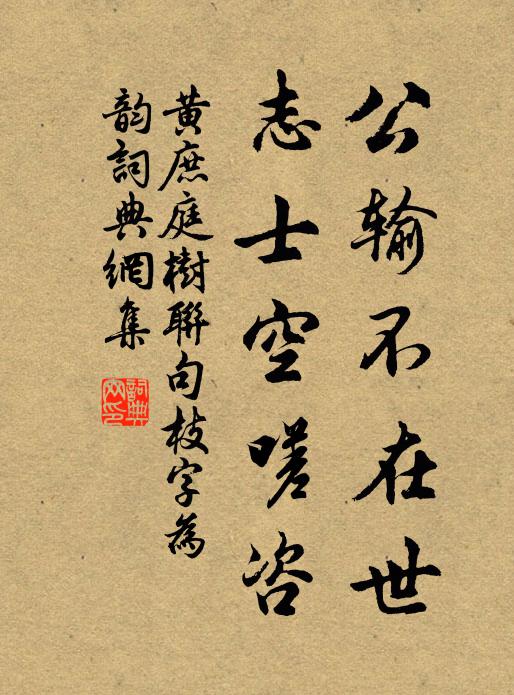 公輸不在世
志士空嗟咨
黃庶庭樹聯句枝字為
韵詞典網集
詞典網印